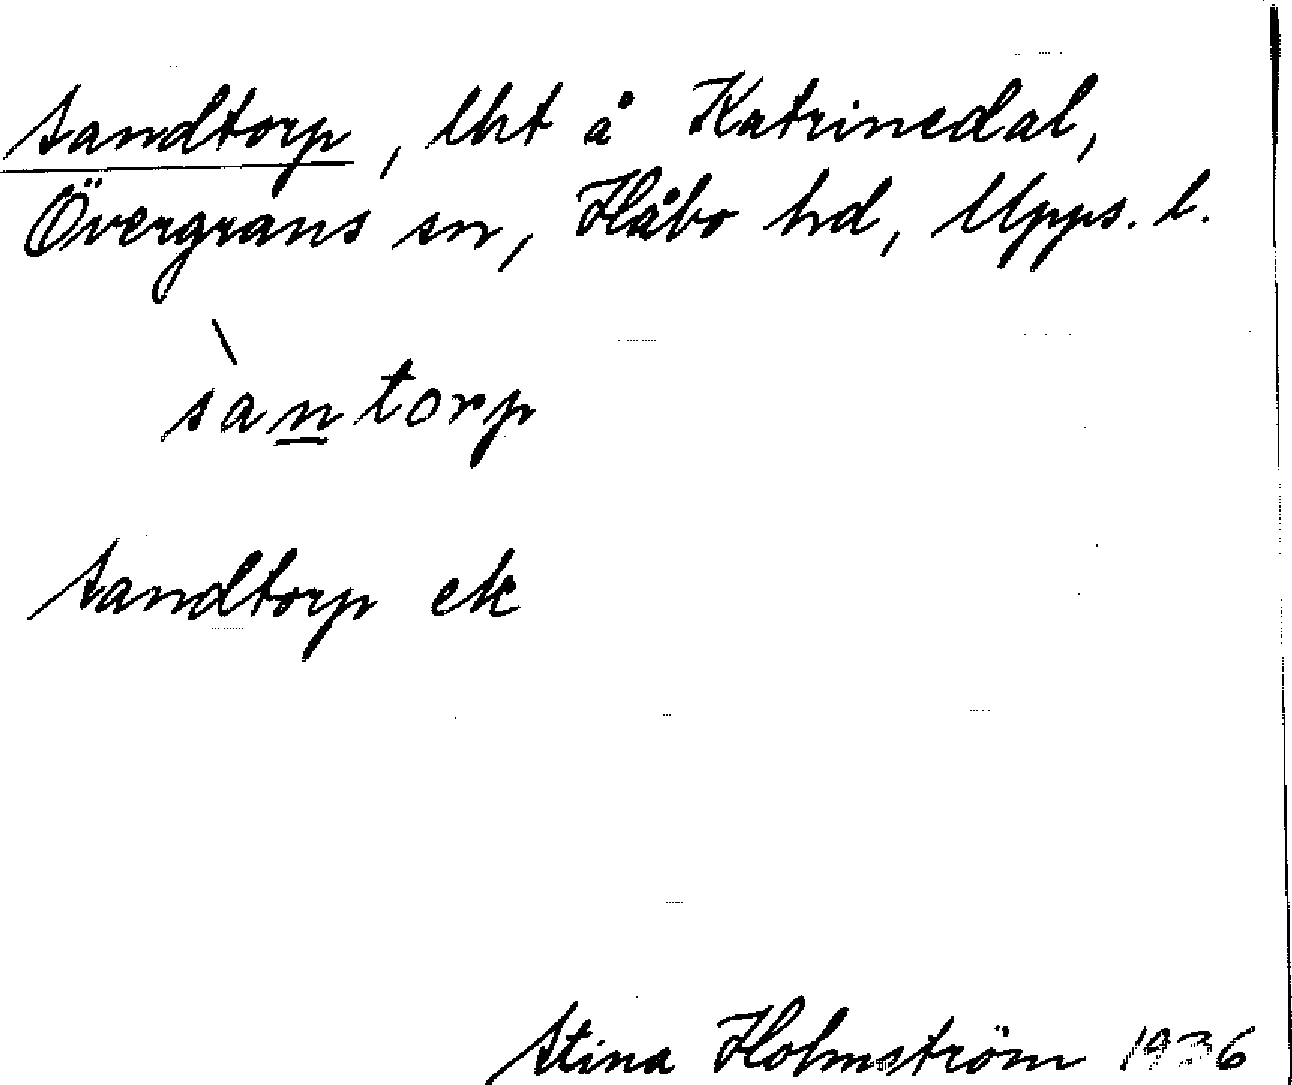 Sandtorp, lht å Katrinedal,
Övergrans sn, Håbo hd, Upps. l.
sàntorp
Sandtorp ek
Stina Holmström 1936